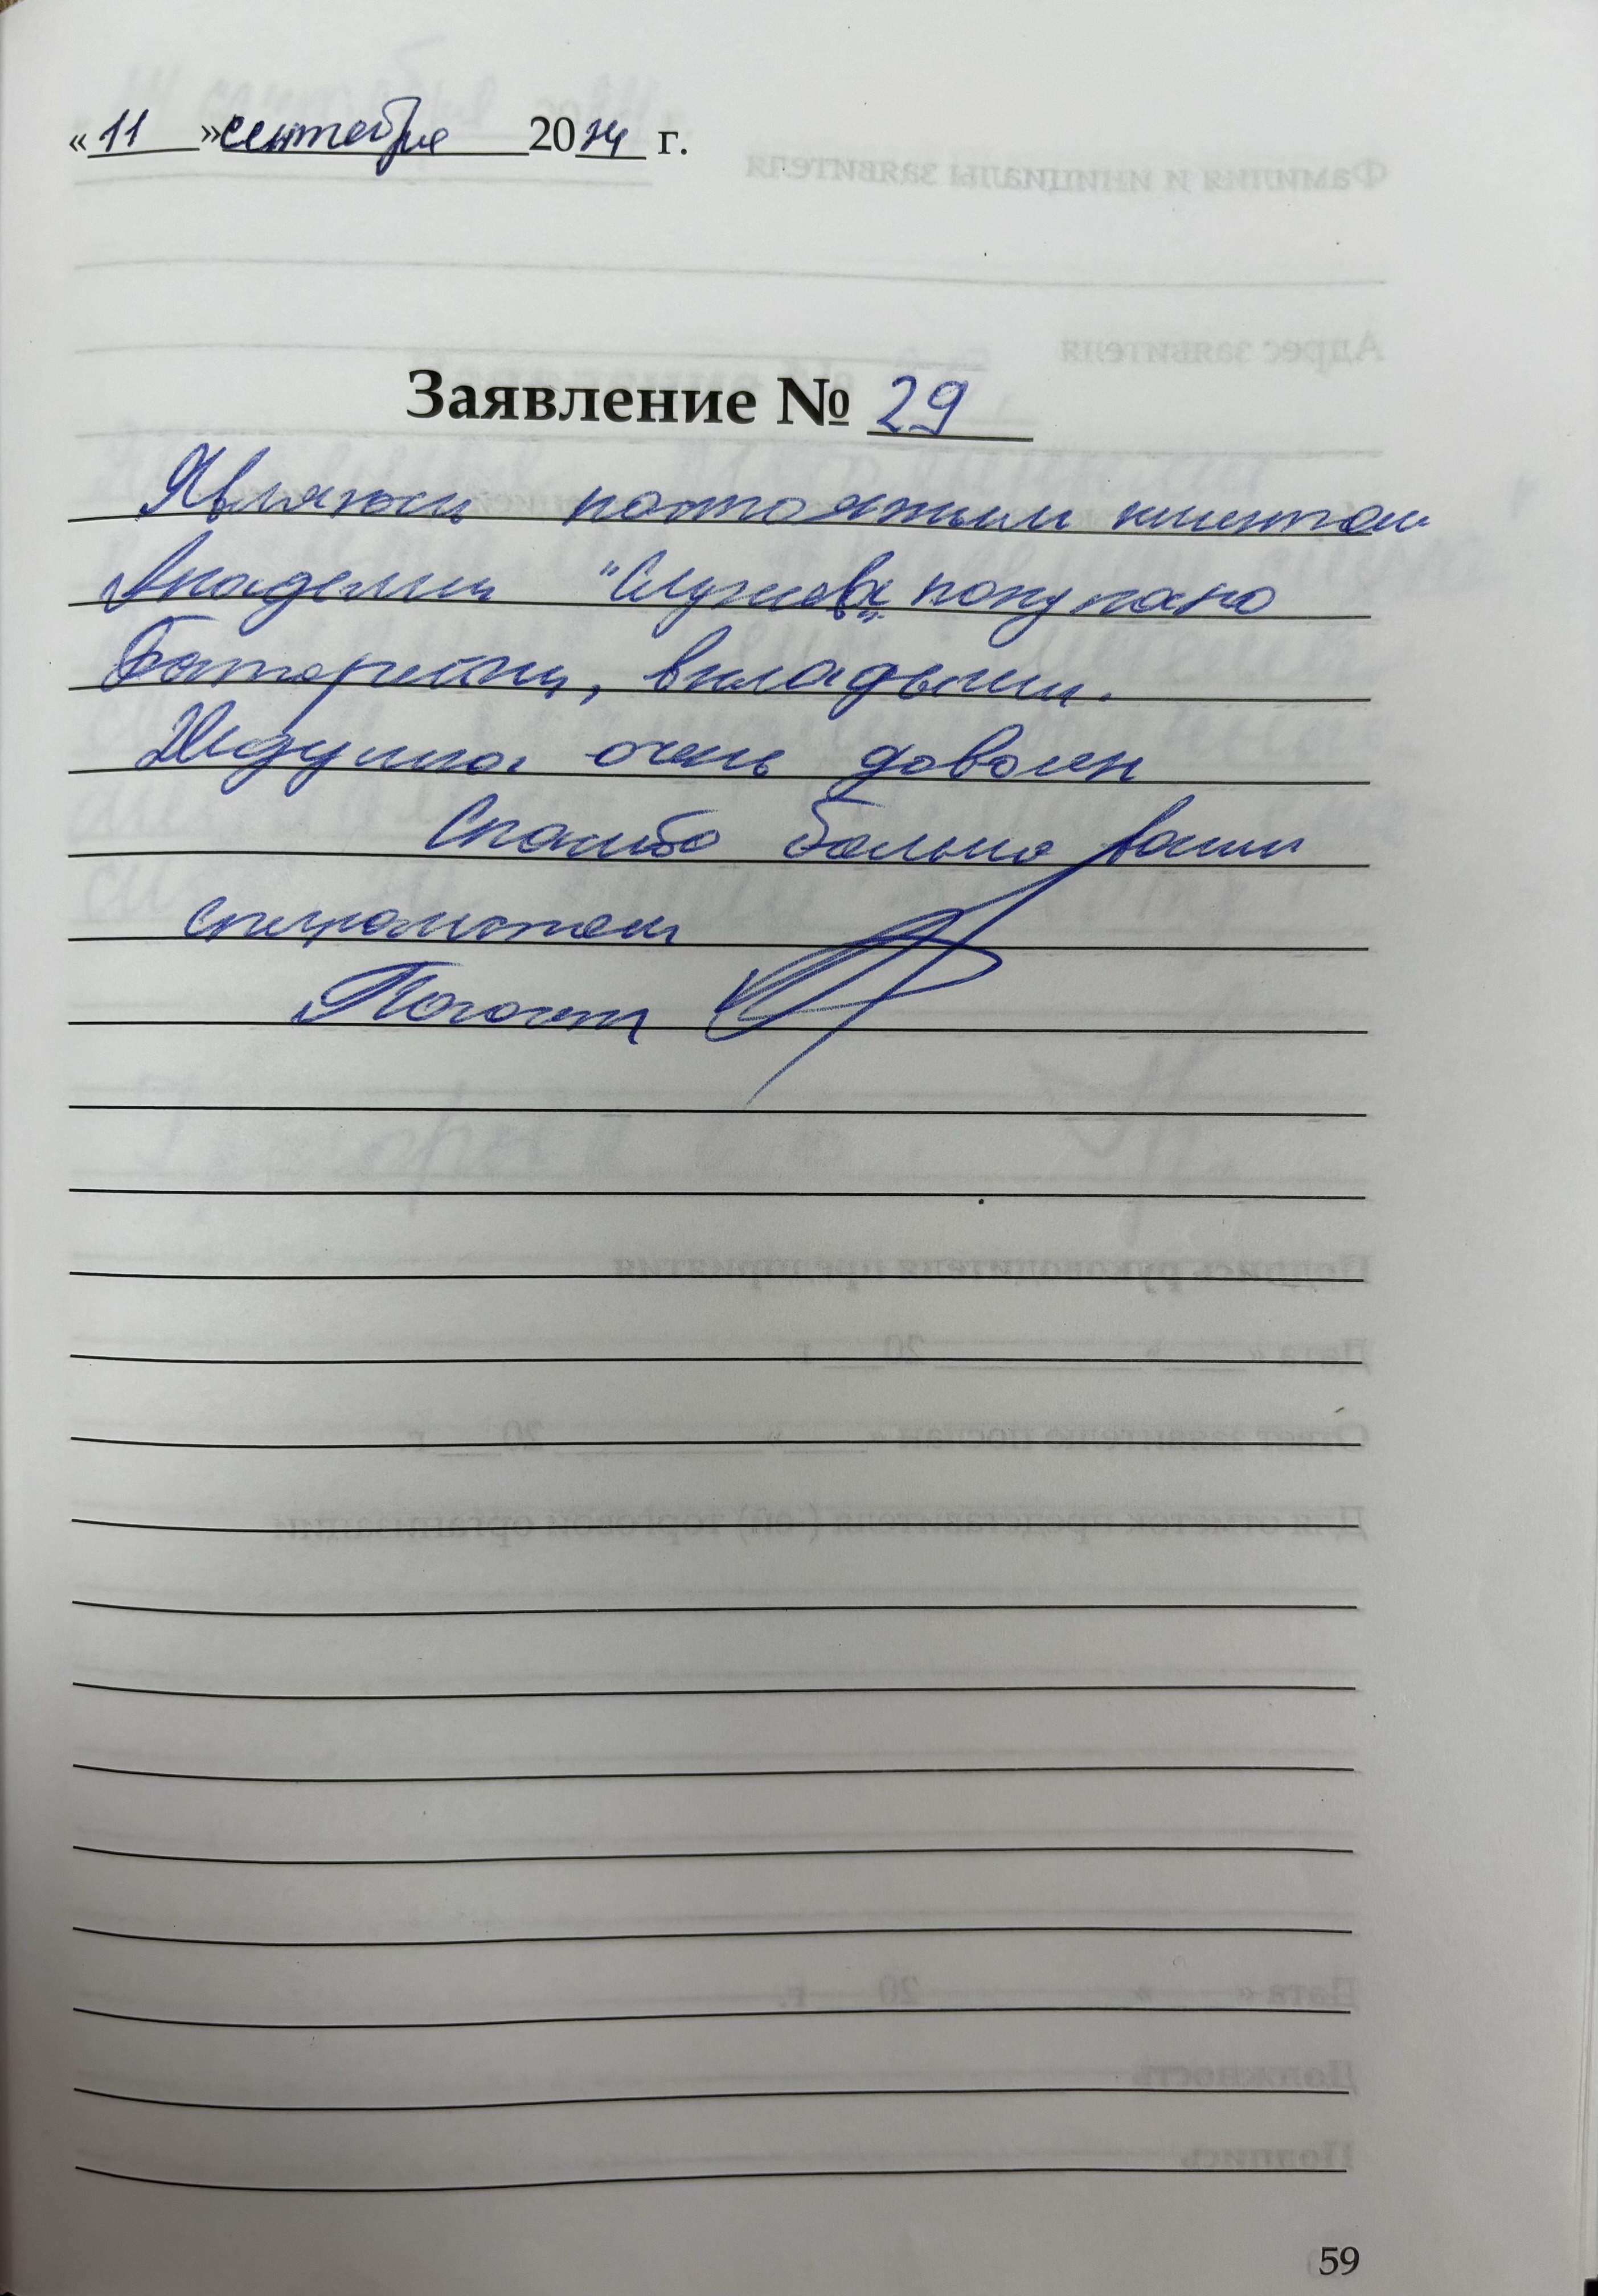 «11» сентября 2024 г.
Заявление № 29
Являюсь постоянным клиентом
Академии "Слухов" покупаю
батарейки, вкладыши.
Дедушка очень доволен
Спасибо большое вашим
специалистам
59